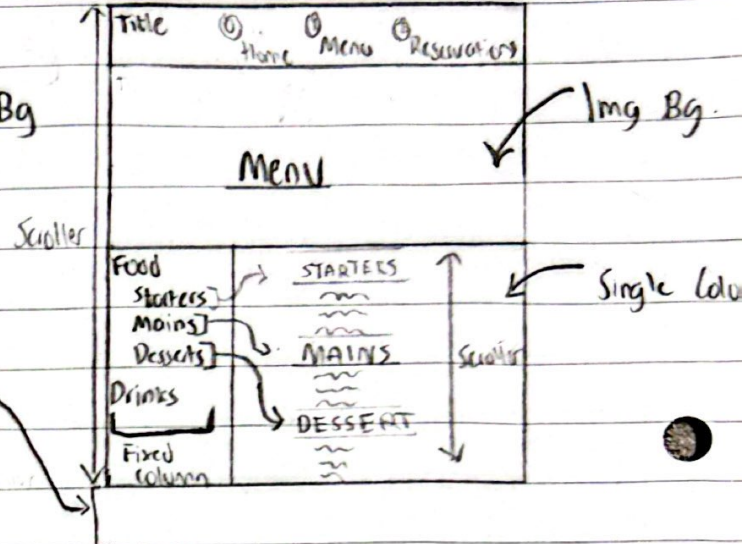 Title
Home Menu Reservations
Bg
Img Bg.
Menu
Scroller
Food
Starters
Mains
Desserts
Drinks
Fixed
Column
STARTERS
MAINS
DESSERT
Scroller
Single